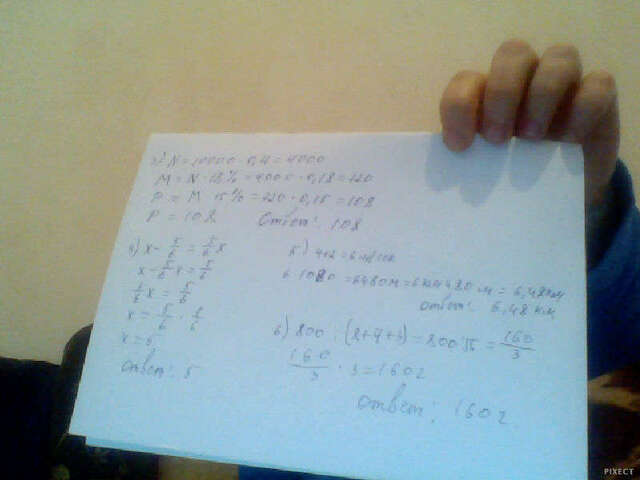 N = 10000 · 0,4 = 4000
M = N · 18% = 4000 · 0,18 = 720
P = M 15% = 720 · 0,15 = 108
P = 108 Ответ: 108
4) x - 5/6 = 5/6 x
x - 5/6 x = 5/6
1/6 x = 5/6
x = 5
Ответ: 5
5) 4+2 = 6 м/сек
6 · 1080 = 6480 м = 6 км 480 м = 6,48 км
Ответ: 6,48 км
6) 800 : (8+4+3) = 800 : 15 = 160/3
160/3 · 3 = 160 г
Ответ: 160 г
PIXECT